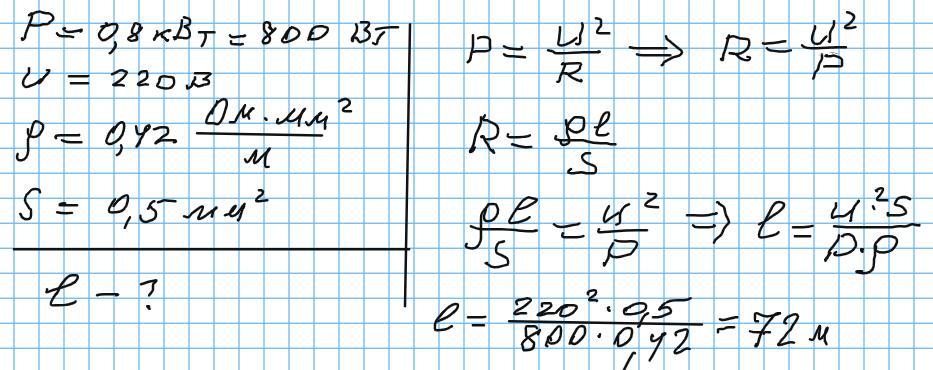 P = 0,8 кВт = 800 Вт
U = 220 В
ρ = 0,42 Ом·мм²/м
S = 0,5 мм²
l - ?
P = U²/R ⟹ R = U²/P
R = ρl/S
ρl/S = U²/P ⟹ l = U·²S/P·ρ
l = 220²·0,5/800·0,42 = 72 м